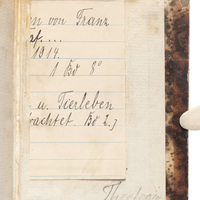 en von Franz
rf....
1914.
1 Bd 8°
u. Tierleben
rachtet. Bd 2.]
Theolog